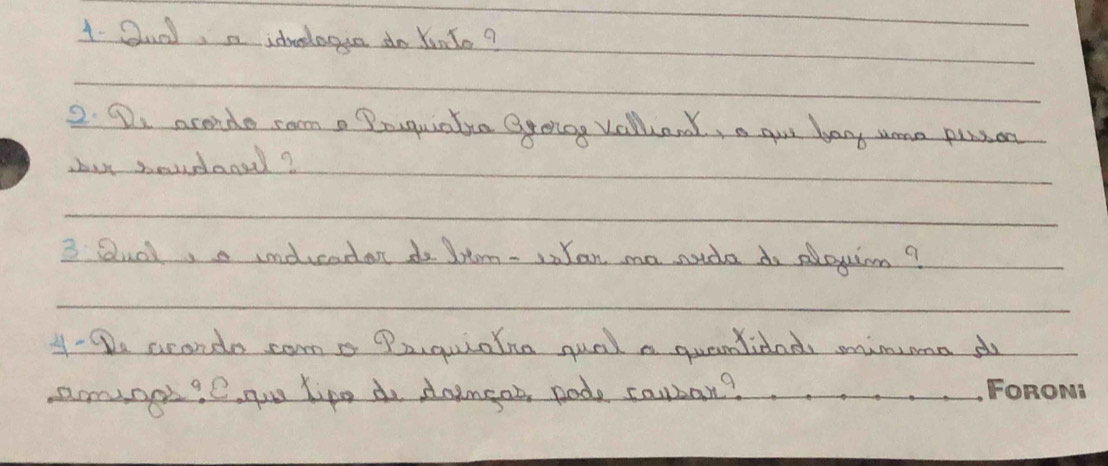 1- Qual, é a ideologia do texto?
2. De acordo com o Psiquiatra George Valliant, o que faz uma pessoa
ser saudavel?
3. Qual é o indicador de bem-estar na vida de alguém?
4- De acordo com o Psiquiatra qual a quantidade minima de
amigos? E que tipo de doenças pode causar?
FORONI